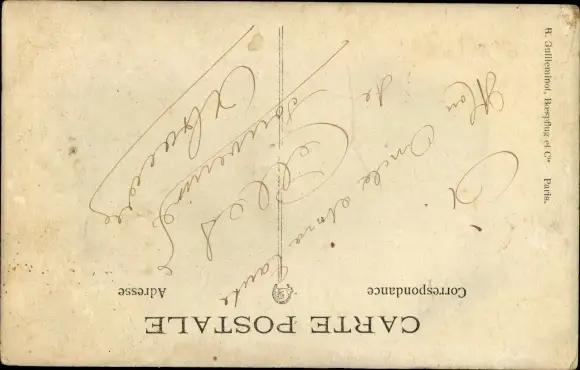 CARTE POSTALE
Correspondance
Adresse
R. Guilleminot, Bœspflug et Cie Paris.
A
Mon Oncle et ma tante
Souvenir
de